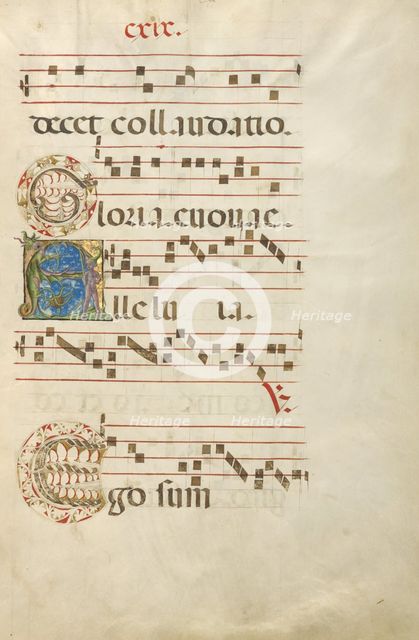 cxix.
decet collaudatio.
Gloria euouae
Allelu ia.
℣.
Ego sum
Heritage Heritage Heritage
Heritage Heritage Heritage